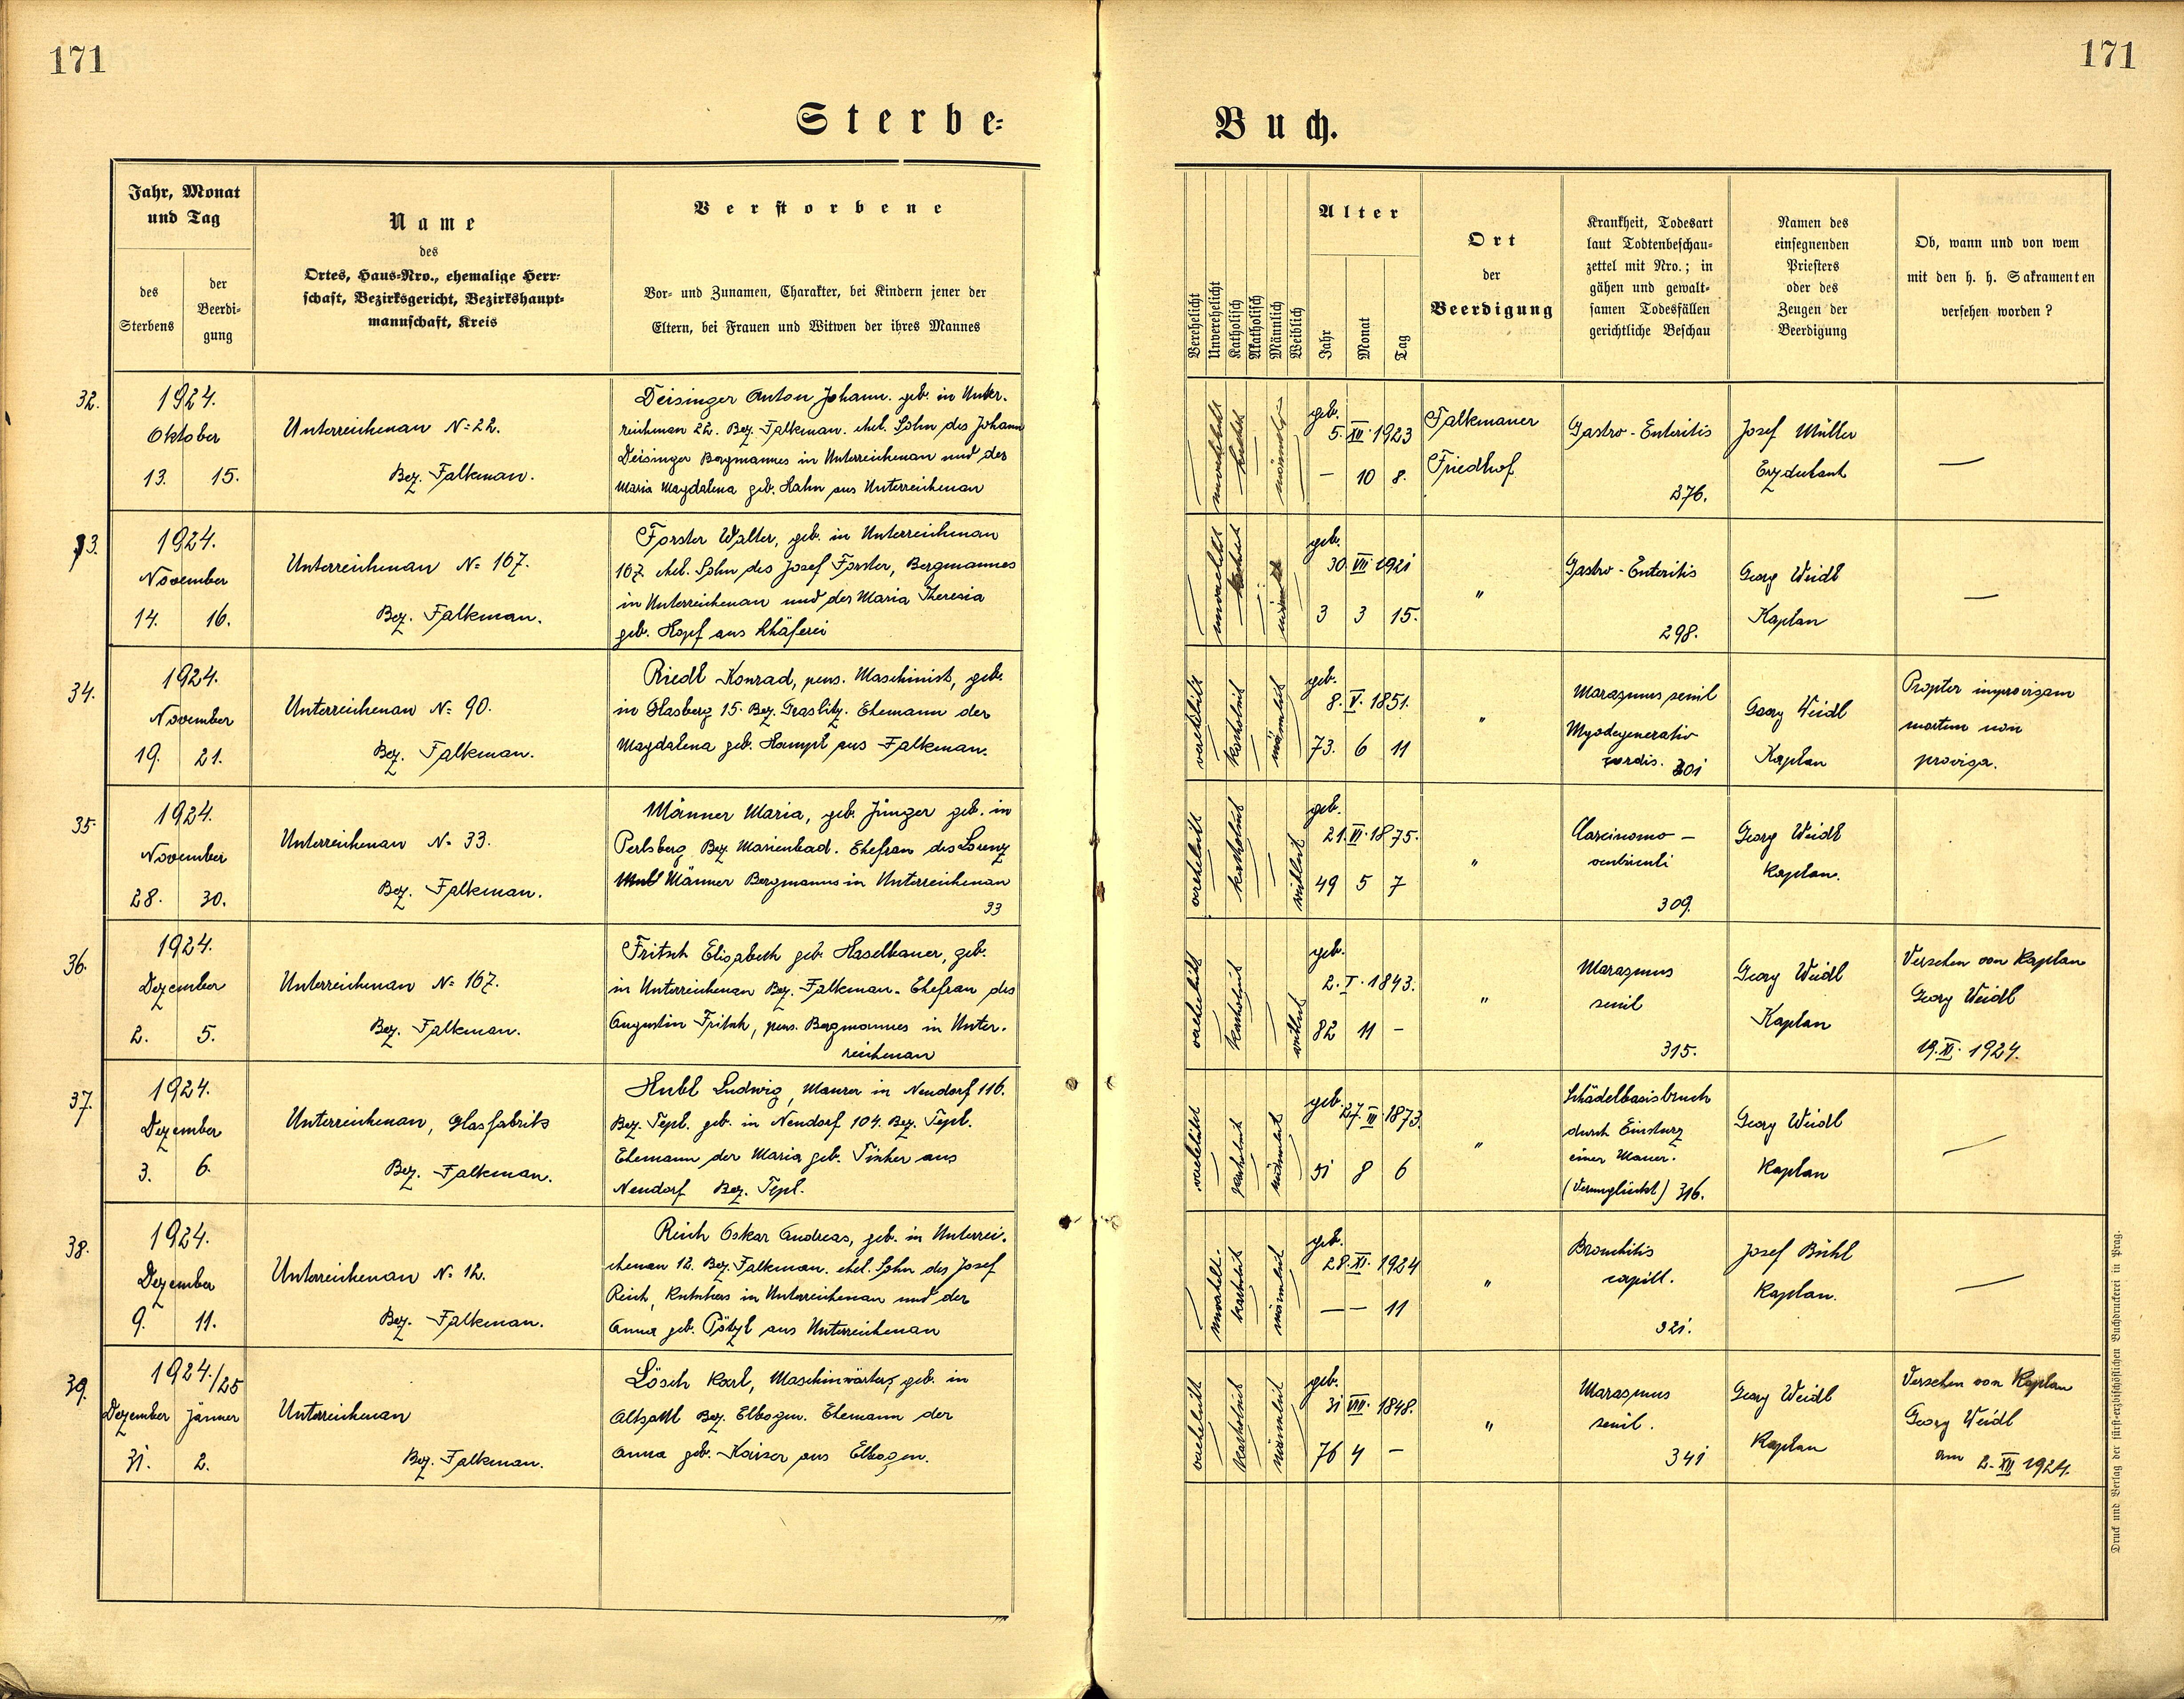 171
171
Sterbe-
Buch.
Jahr, Monat
und Tag
des
Sterbens
der
Beerdi-
gung
Name
des
Ortes, Haus-Nro., ehemalige Herr-
schaft, Bezirksgericht, Bezirkshaupt-
mannschaft, Kreis
Verstorbene
Vor- und Zunamen, Charakter, bei Kindern jener der
Eltern, bei Frauen und Witwen der ihres Mannes
Verehelicht
Unverehelicht
Katholisch
Akatholisch
Männlich
Weiblich
Alter
Jahr
Monat
Tag
Ort
der
Beerdigung
Krankheit, Todesart
laut Todtenbeschau-
zettel mit Nro.; in
gähen und gewalt-
samen Todesfällen
gerichtliche Beschau
Namen des
einsegnenden
Priesters
oder des
Zeugen der
Beerdigung
Ob, wann und von wem
mit den h. h. Sakramenten
versehen worden?
32.
1924.
Oktober
13. 15.
Unterreichenau N=22.
Bez. Falkenau.
Deisinger Anton Johann. geb. in Unter-
reichenau 22. Bez. Falkenau. ehel. Sohn des Johann
Deisinger Bergmannes in Unterreichenau und der
Maria Magdalena geb. Hahn aus Unterreichenau
männlich
geb.
5. XII. 1923
— 10 8.
Falkenauer
Friedhof
Gastro-Enteritis
276.
Josef Müller
Erzdechant
—
33.
1924.
November
14. 16.
Unterreichenau N= 167.
Bez. Falkenau.
Forster Walter, geb. in Unterreichenau
167. ehel. Sohn des Josef Forster, Bergmannes
in Unterreichenau und der Maria Theresia
geb. Hopf aus Schäferei
geb.
30. VII 1921
3 3 15.
"
Gastro-Enteritis
298.
Georg Weidl
Kaplan
—
34.
1924.
November
19. 21.
Unterreichenau N= 90.
Bez. Falkenau.
Riedl Konrad, pens. Maschinist, geb.
in Glasberg 15. Bez. Graslitz. Ehemann der
Magdalena geb. Hampl aus Falkenau.
verehelicht
katholisch
männlich
geb.
8. V. 1851.
73. 6 11
"
Marasmus senil
Myodegeneratio
cordis. 301
Georg Weidl
Kaplan
Propter improvisam
mortem non
provisa.
35.
1924.
November
28. 30.
Unterreichenau N= 33.
Bez. Falkenau.
Männer Maria, geb. Jünger geb. in
Perlsberg Bez Marienbad. Ehefrau des Lorenz
Männer Bergmanns in Unterreichenau
33
verehelicht
katholisch
weiblich
geb.
21. VI. 1875.
49 5 7
"
Carcinomo -
309.
Georg Weidl
Kaplan.
36.
1924.
Dezember
2. 5.
Unterreichenau N= 167.
Bez. Falkenau.
Fritsch Elisabeth geb. Haselbauer, geb.
in Unterreichenau Bez. Falkenau. Ehefrau des
Augustin Fritsch, pens. Bergmannes in Unter-
reichenau
verehelicht
katholisch
weiblich
geb.
2. I. 1843.
82 11 -
"
Marasmus
senil
315.
Georg Weidl
Kaplan
Versehen von Kaplan
Georg Weidl
19. XI. 1924.
37.
1924.
Dezember
3. 6.
Unterreichenau, Glasfabrik
Bez. Falkenau.
Hubl Ludwig, Maurer in Neudorf 116.
Bez. Tepl. geb. in Neudorf 104. Bez. Tepl.
Ehemann der Maria geb. Fischer aus
Neudorf Bez. Tepl.
verehelicht
katholisch
männlich
geb.
27. III. 1873.
51 8 6
"
Schädelbasisbruch
durch Einsturz
einer Mauer.
(Verunglückt) 316.
Georg Weidl
Kaplan
—
38.
1924.
Dezember
9. 11.
Unterreichenau N= 12.
Bez. Falkenau.
Reich Oskar Andreas, geb. in Unterrei-
chenau 12. Bez. Falkenau. ehel. Sohn des Josef
Reich, Kutschers in Unterreichenau und der
Anna geb. Pötzl aus Unterreichenau
unverehel.
katholisch
männlich
geb.
28. XI. 1924
— — 11
"
Bronchitis
capill.
321.
Josef Bühl
Kaplan.
—
39.
1924./25
Dezember Jänner
31. 2.
Unterreichenau
Bez. Falkenau.
Lösch Karl, Maschinwärter, geb. in
Altsattl Bez. Elbogen. Ehemann der
Anna geb. Kaiser aus Elbogen.
verehelicht
katholisch
männlich
geb.
31 VIII. 1848.
76 4 -
"
Marasmus
senil.
341
Georg Weidl
Kaplan
Versehen von Kaplan
Georg Weidl
am 2. XII 1924.
Druck und Verlag der fürst-erzbischöflichen Buchdruckerei in Prag.